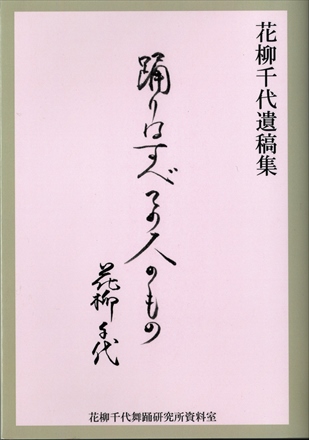 花柳千代遺稿集
踊りはすべての人のもの
花柳千代
花柳千代舞踊研究所資料室